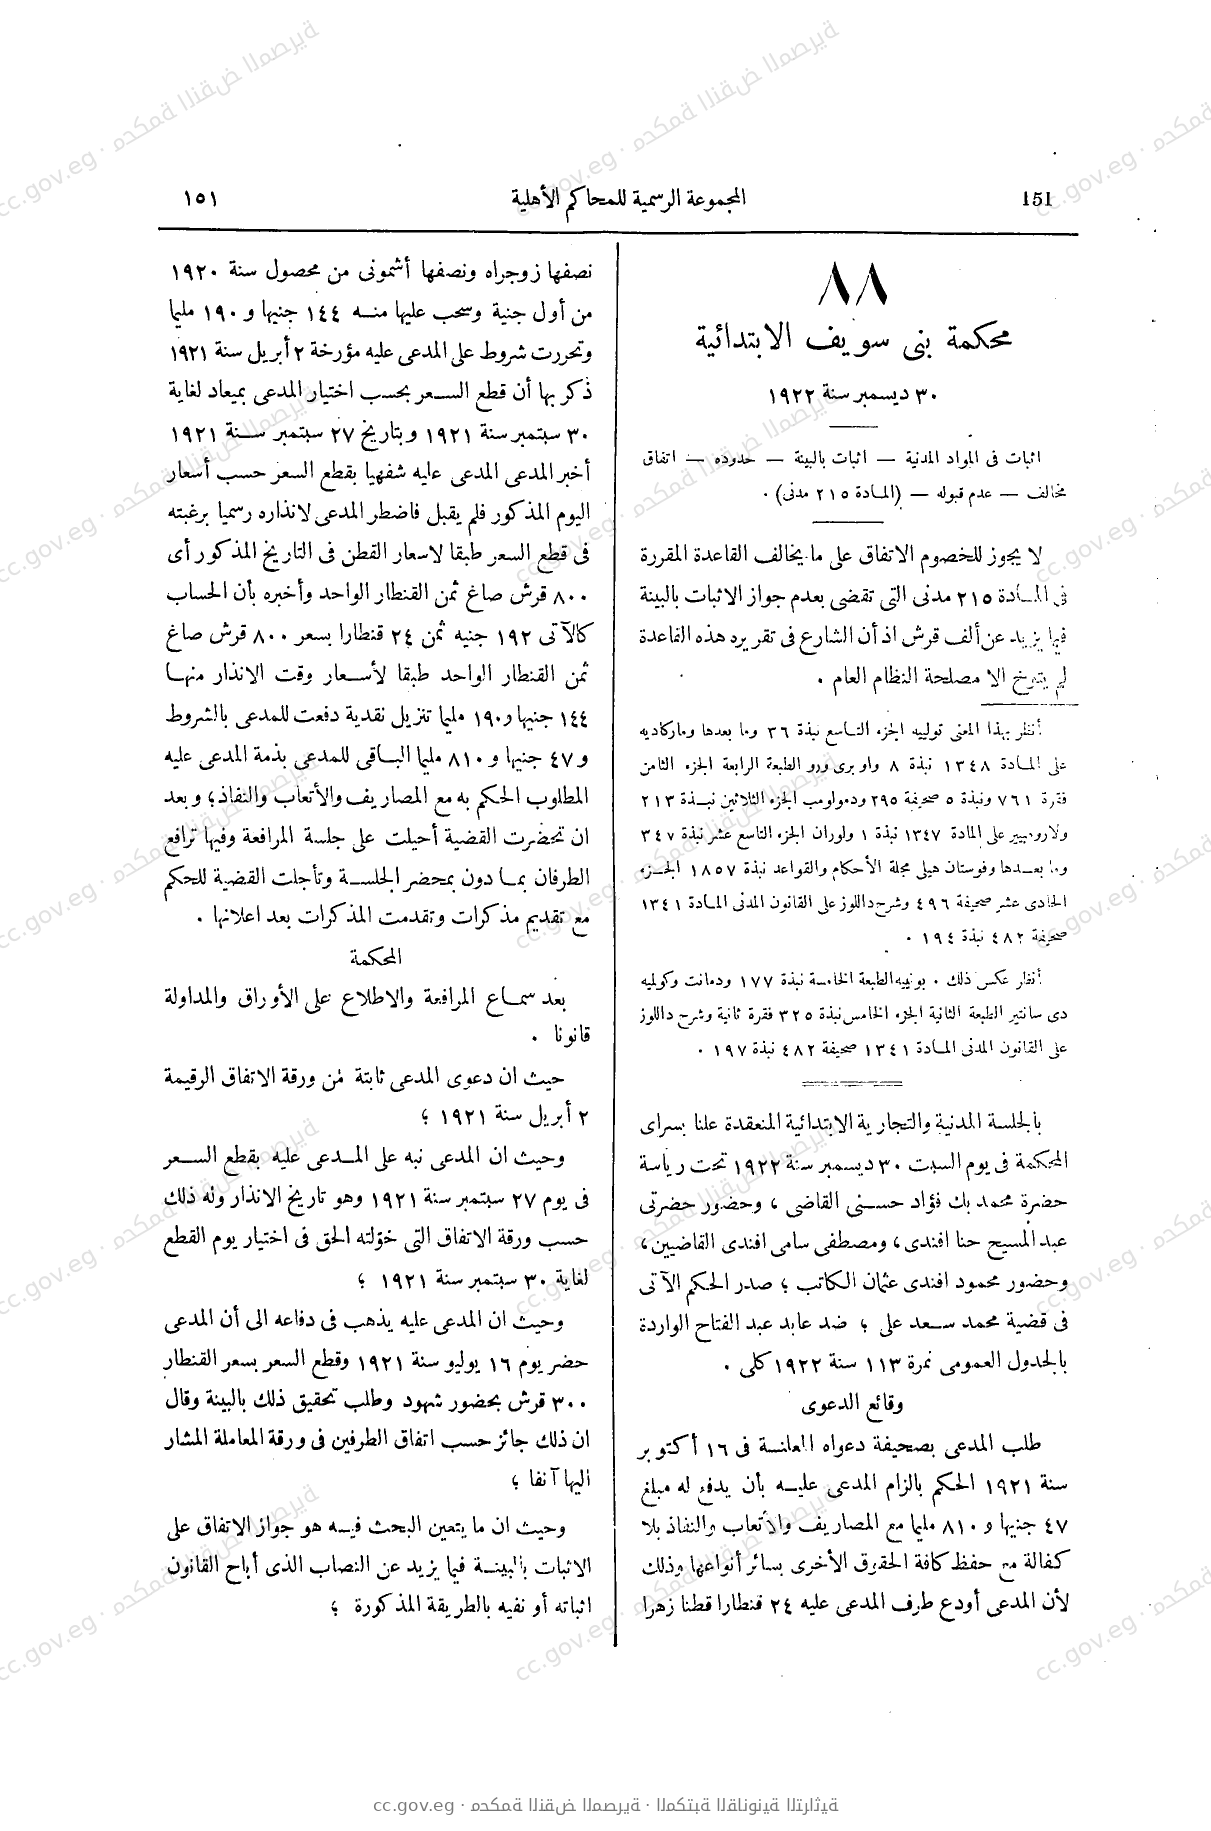 151
المجموعة الرسمية للمحاكم الأهلية
١٥١
٨٨
محكمة بنى سويف الابتدائية
٣٠ ديسمبر سنة ١٩٢٢
اثبات فى المواد المدنية — اثبات بالبينة — حدوده — اتفاق
مخالف — عدم قبوله — (المادة ٢١٥ مدنى) .
لا يجوز للخصوم الاتفاق على ما يخالف القاعدة المقررة
فى المادة ٢١٥ مدنى التى تقضى بعدم جواز الاثبات بالبينة
فيما يزيد عن ألف قرش اذ أن الشارع فى تقريره هذه القاعدة
لم يتوخ الا مصلحة النظام العام .
أنظر بهذا المعنى توليه الجزء التاسع نبذة ٣٦ وما بعدها وماركاديه
على المادة ١٣٤٨ نبذة ٨ واوبرى ورو الطبعة الرابعة الجزء الثامن
فقرة ٧٦١ ونبذة ٥ صحيفة ٢٩٥ ودمولومب الجزء الثلاثين نبذة ٢١٣
ولارومبيير على المادة ١٣٤٧ نبذة ١ ولوران الجزء التاسع عشر نبذة ٣٤٧
وما بعدها وفوستان هيلى مجلة الأحكام والقواعد نبذة ١٨٥٧ الجزء
الحادى عشر صحيفة ٤٩٦ وشرح داللوز على القانون المدنى المادة ١٣٤١
صحيفة ٤٨٢ نبذة ١٩٤ .
أنظر عكس ذلك . بونييه الطبعة الخامسة نبذة ١٧٧ ودمانت وكولميه
دى سانتير الطبعة الثانية الجزء الخامس نبذة ٣٢٥ فقرة ثانية وشرح داللوز
على القانون المدنى المادة ١٣٤١ صحيفة ٤٨٢ نبذة ١٩٧ .
بالجلسة المدنية والتجارية الابتدائية المنعقدة علنا بسراى
المحكمة فى يوم السبت ٣٠ ديسمبر سنة ١٩٢٢ تحت رياسة
حضرة محمد بك فؤاد حسنى القاضى ، وحضور حضرتى
عبد المسيح حنا افندى ، ومصطفى سامى افندى القاضيين ،
وحضور محمود افندى عثمان الكاتب ؛ صدر الحكم الآتى
فى قضية محمد سعد على ؛ ضد عابد عبد الفتاح الواردة
بالجدول العمومى نمرة ١١٣ سنة ١٩٢٢ كلى .
وقائع الدعوى
طلب المدعى بصحيفة دعواه المعلنة فى ١٦ أكتوبر
سنة ١٩٢١ الحكم بالزام المدعى عليه بأن يدفع له مبلغ
٤٧ جنيها و ٨١٠ مليما مع المصاريف والأتعاب والنفاذ بلا
كفالة مع حفظ كافة الحقوق الأخرى بسائر أنواعها وذلك
لأن المدعى أودع طرف المدعى عليه ٢٤ قنطارا قطنا زهرا
نصفها زوجراه ونصفها أشمونى من محصول سنة ١٩٢٠
من أول جنية وسحب عليها منه ١٤٤ جنيها و ١٩٠ مليما
وتحررت شروط على المدعى عليه مؤرخة ٢ أبريل سنة ١٩٢١
ذكر بها أن قطع السعر بحسب اختيار المدعى بميعاد لغاية
٣٠ سبتمبر سنة ١٩٢١ وبتاريخ ٢٧ سبتمبر سنة ١٩٢١
أخبر المدعى المدعى عليه شفهيا بقطع السعر حسب أسعار
اليوم المذكور فلم يقبل فاضطر المدعى لانذاره رسميا برغبته
فى قطع السعر طبقا لاسعار القطن فى التاريخ المذكور أى
٨٠٠ قرش صاغ ثمن القنطار الواحد وأخبره بأن الحساب
كالآتى ١٩٢ جنيه ثمن ٢٤ قنطارا بسعر ٨٠٠ قرش صاغ
ثمن القنطار الواحد طبقا لأسعار وقت الانذار منها
١٤٤ جنيها و١٩٠ مليما تنزيل نقدية دفعت للمدعى بالشروط
و ٤٧ جنيها و ٨١٠ مليما الباقى للمدعى بذمة المدعى عليه
المطلوب الحكم به مع المصاريف والأتعاب والنفاذ ؛ وبعد
ان تحضرت القضية أحيلت على جلسة المرافعة وفيها ترافع
الطرفان بما دون بمحضر الجلسة وتأجلت القضية للحكم
مع تقديم مذكرات وتقدمت المذكرات بعد اعلانها .
المحكمة
بعد سماع المرافعة والاطلاع على الأوراق والمداولة
قانونا .
حيث ان دعوى المدعى ثابتة من ورقة الاتفاق الرقيمة
٢ أبريل سنة ١٩٢١ ؛
وحيث ان المدعى نبه على المدعى عليه بقطع السعر
فى يوم ٢٧ سبتمبر سنة ١٩٢١ وهو تاريخ الانذار وله ذلك
حسب ورقة الاتفاق التى خوّلته الحق فى اختيار يوم القطع
لغاية ٣٠ سبتمبر سنة ١٩٢١ ؛
وحيث ان المدعى عليه يذهب فى دفاعه الى أن المدعى
حضر يوم ١٦ يوليو سنة ١٩٢١ وقطع السعر بسعر القنطار
٣٠٠ قرش بحضور شهود وطلب تحقيق ذلك بالبينة وقال
ان ذلك جائز حسب اتفاق الطرفين فى ورقة المعاملة المشار
اليها آنفا ؛
وحيث ان ما يتعين البحث فيه هو جواز الاتفاق على
الاثبات بالبينة فيما يزيد عن النصاب الذى أباح القانون
اثباته أو نفيه بالطريقة المذكورة ؛
cc.gov.eg · محكمة النقض المصرية · المكتبة القانونية التراثية